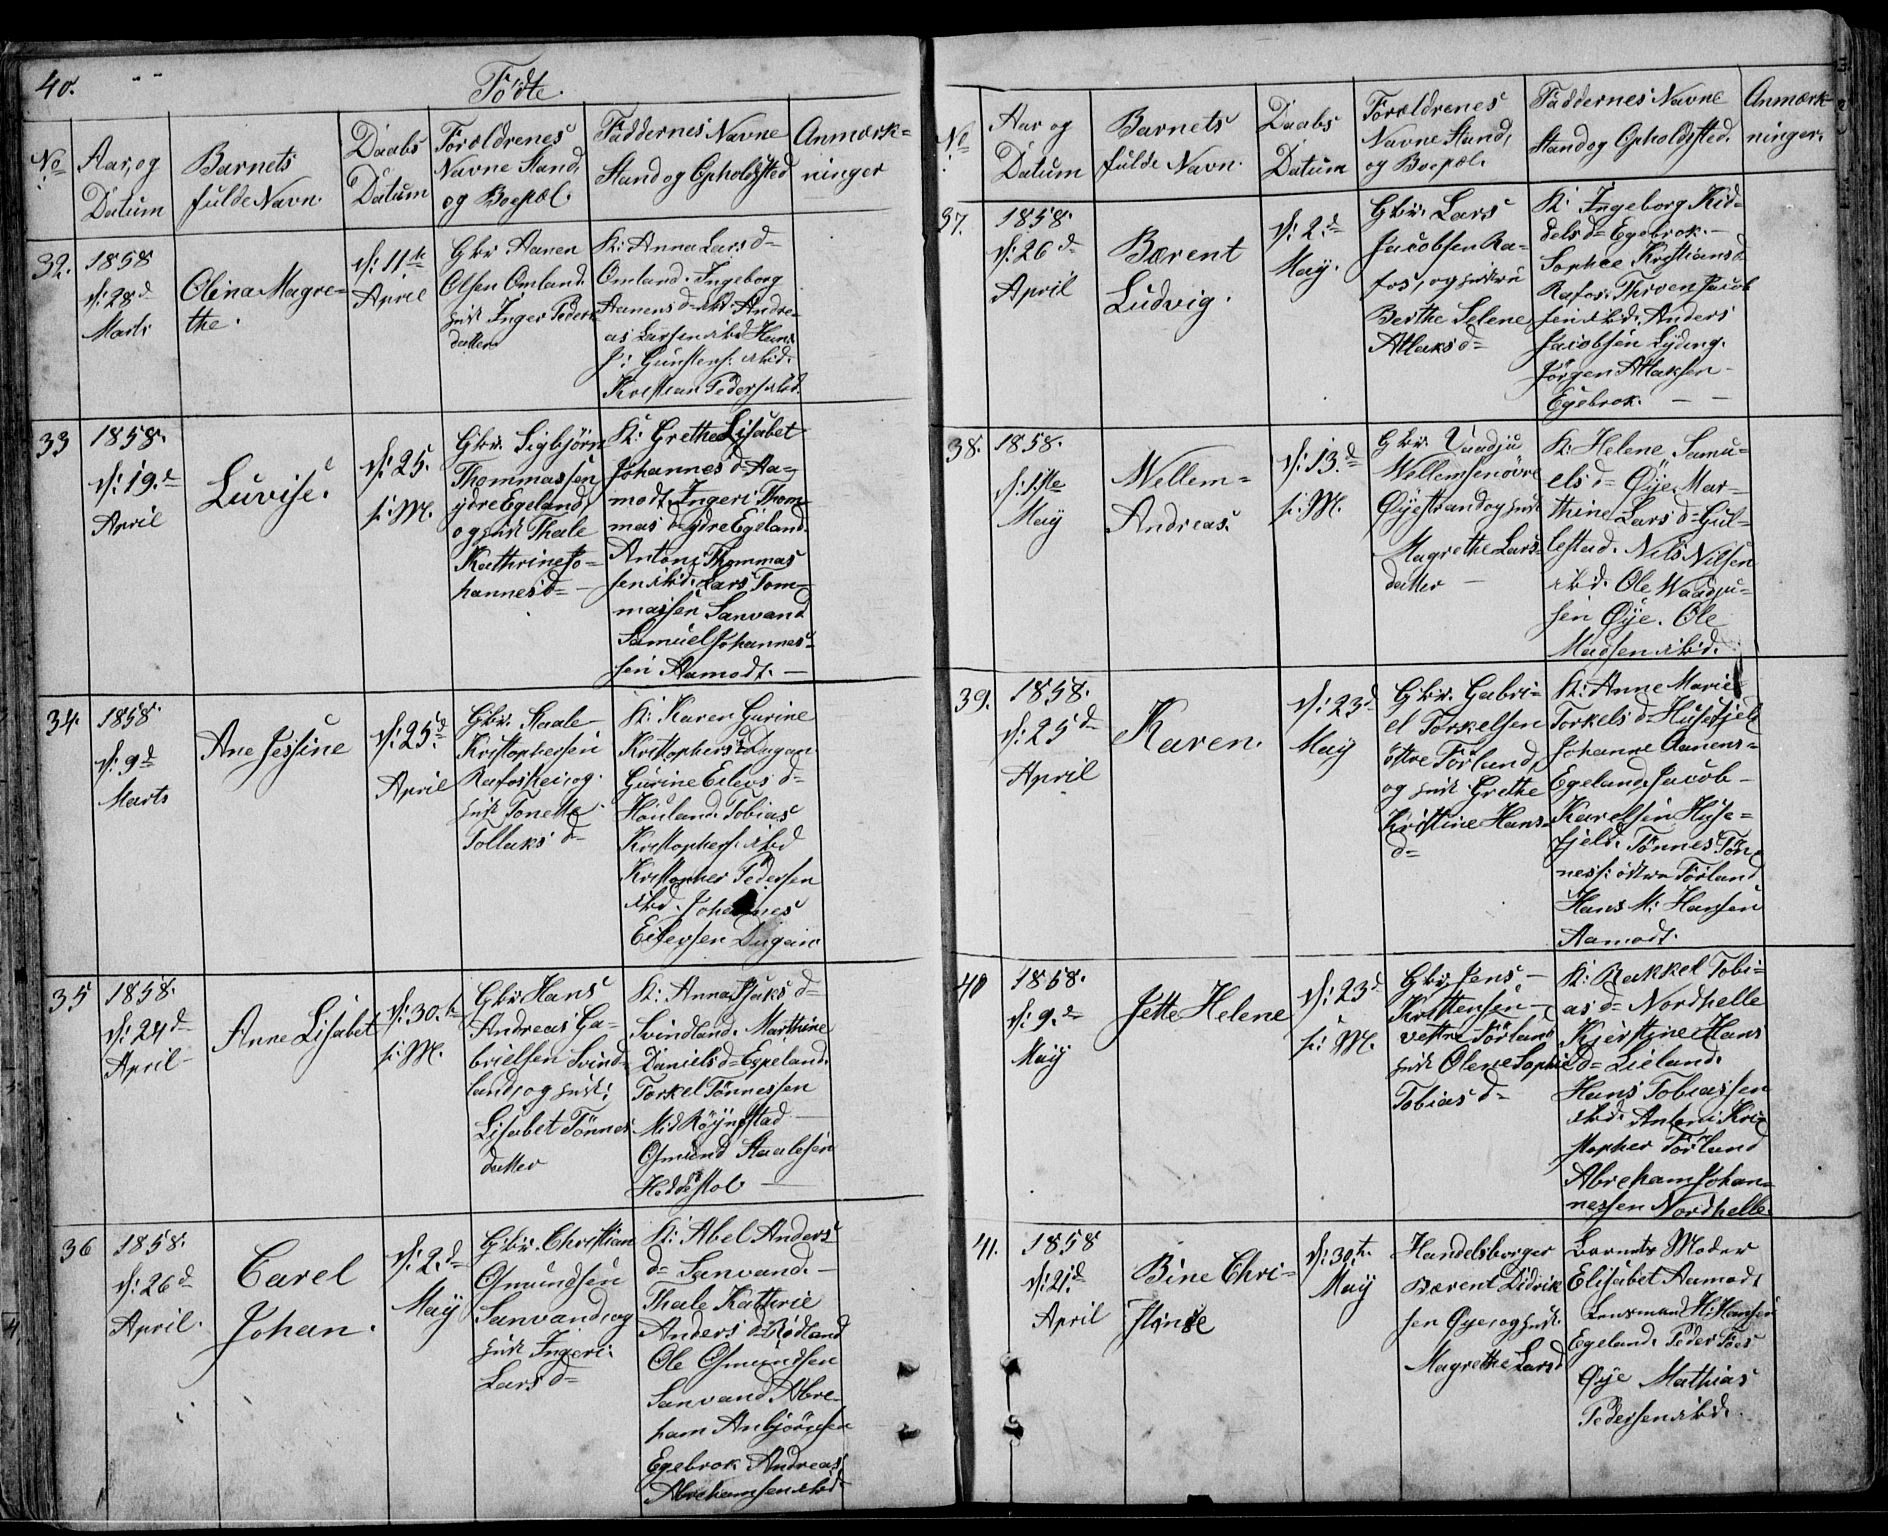 40.
Fødte.
No
Aar og
Datum
Barnets
fulde Navn.
Daabs
Datum
Forældrenes
Navne Stand,
og Boepæl.
Faddernes Navne
Stand og Opholdssted
Anmærk=
ninger
32.
1858
d: 28d
Marts
Olina Magre=
the.
d: 11te
April
Gbr Aanen
Olsen Omland.
Inger Peders
datter
K: Anna Lars d=
Omland. Ingeborg
Aanens d= ibd. Andre=
as Larsen ibd Hans
Gunstens: ibd.
Kristian Peders ibd.
33
1858.
d: 19.de
April
Luvise.
d: 25.
s: M.
Gbr. Sigbjørn
Thommassen
ydre Egeland,
og Thale
Kathrine Jo=
hannes d=
K: Grethe Lisabet
Johannes d= Aa=
modt. Ingeri Thom
mas d= ydre Egeland.
Antoni Thommas
sen ibd. Lars Tom=
massen Sanvand
Samuel Johannes=
sen Aamodt. —
34.
1858
d: 9de
Marts
Ane Jessine
d: 25d
April
Gbr. Staale
Kristophersen
Rafoshei, og
Tonette
Tollaks d=
K: Karen Gurine
Kristophers d= Dugan.
Gurine Eilevs d=
Houland. Tobias
Kristophers: ibd
Kristopher Pedersen
ibd. Johannes
Eilevsen Dugan
35
1858.
d: 24d
April
Anne Lisabet
d: 30.te
s: M.
Gbr Hans
Andreas Ga=
brielsen Svind=
land, og
Lisabet Tønnes
datter
K: Anna Isaks d=
Svindland. Marthine
Daniels d= Espeland.
Torkel Tønnessen
Mid Røynestad —
Osmund Staalesen
Heddestol —
36
1858.
d: 26d
April.
Carel
Johan.
d: 2.d
May
Gbr. Christian
Osmundsen
Sanvand, og
Ingeri
Lars d=
K: Abel Anders
d= Sanvand. —
Thale Kathrie
Anders d= Rødland
Ole Osmundsen
Sanvand Abre=
ham Anbjørnsen
Egebrok Andreas
Abrehamsen ibd.
No
Aar og
Datum
Barnets
fulde Navn.
Daabs
Datum
Forældrenes
Navne Stand,
og Boepæl.
Faddernes Navne
Stand og Opholdssted.
Anmærk=
ninger.
37.
1858.
d: 26d
April
Bærent
Ludvig.
d: 2.d
May.
Gbr. Lars
Jacobsen Ra=
fos, og
Berthe Selene
Atlaks d=
K: Ingeborg Kid=
dels d= Egebrok. —
Sophie Kristians d
Rafos. Jacob
sen ibd. Anders
Jacobsen Lyding.
Jørgen Atlaksen
Egebrok. — —
38.
1858.
d: 1ste
May
Nellem=
Andreas.
d: 13.de
s: M.
Gbr. Vaadju
Nellemsen øvre
Øyestrand og
Magrethe Lars
datter —
K: Helene Samu=
els d= Øye. Mar=
thine Lars d= Gul=
lestad. Nils Nilsen
ibd. Ole Waadju=
sen Øye. Ole
Madsen ibd.
39.
1858.
d: 25d
April
Karen.
d: 23d
May
Gbr. Gabri=
el Torkelsen
østre Førland,
og Grethe
Kristine Hans=
d=
K: Anne Marie
Torkels d= Husefjeld
Johanne Aanens=
Egeland. Jacob
Karelsen Huse=
fjeld. Tønnes Tøn
ness: østre Førland
Hans M: Hansen
Aamodt.
40
1858.
d: 9.de
May
Jette Helene
d: 23d
s: M.
Gbr. Jens —
Kristensen —
vestre Førland
Olene Sophie
Tobias d=
K: Rakkel Tobi=
as d= Nordhelle
Kjerstine Hans
d= Lieland.
Hans Tobiassen
ibd. Antoni Kri
stopher Førland
Abreham Johan=
nessen Nordhelle.
41.
1858
d: 21d
April
Bine Chri=
stine
d: 30.te
May
Handelsborger
Bærent Didrik
sen Øye, og
Magrethe Lars d
Barnets Moder
Elisabet Aamodt
Lensmand H: Hansen
Egeland. Peder Foss
Øye Mathias
Pedersen ibd.